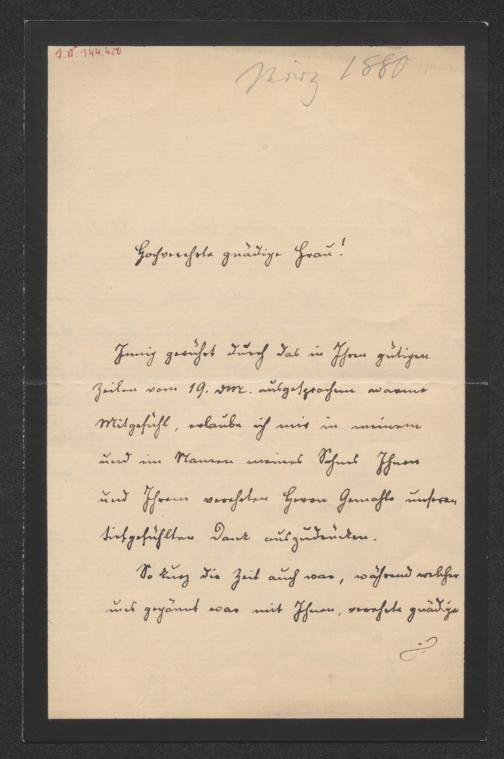 I.N. 144.460
März 1880
Hochverehrte gnädige Frau!
Innig gerührt durch das in Ihren gütigen
Zeilen vom 19. dM. ausgesprochene warme
Mitgefühl, erlaube ich mir in meinem
und im Namen meines Sohnes Ihnen
und Ihrem verehrten Herrn Gemahle unseren
tiefgefühlten Dank auszudrücken.
So kurz die Zeit auch war, während welcher
uns gegönnt war mit Ihnen, verehrte gnädige